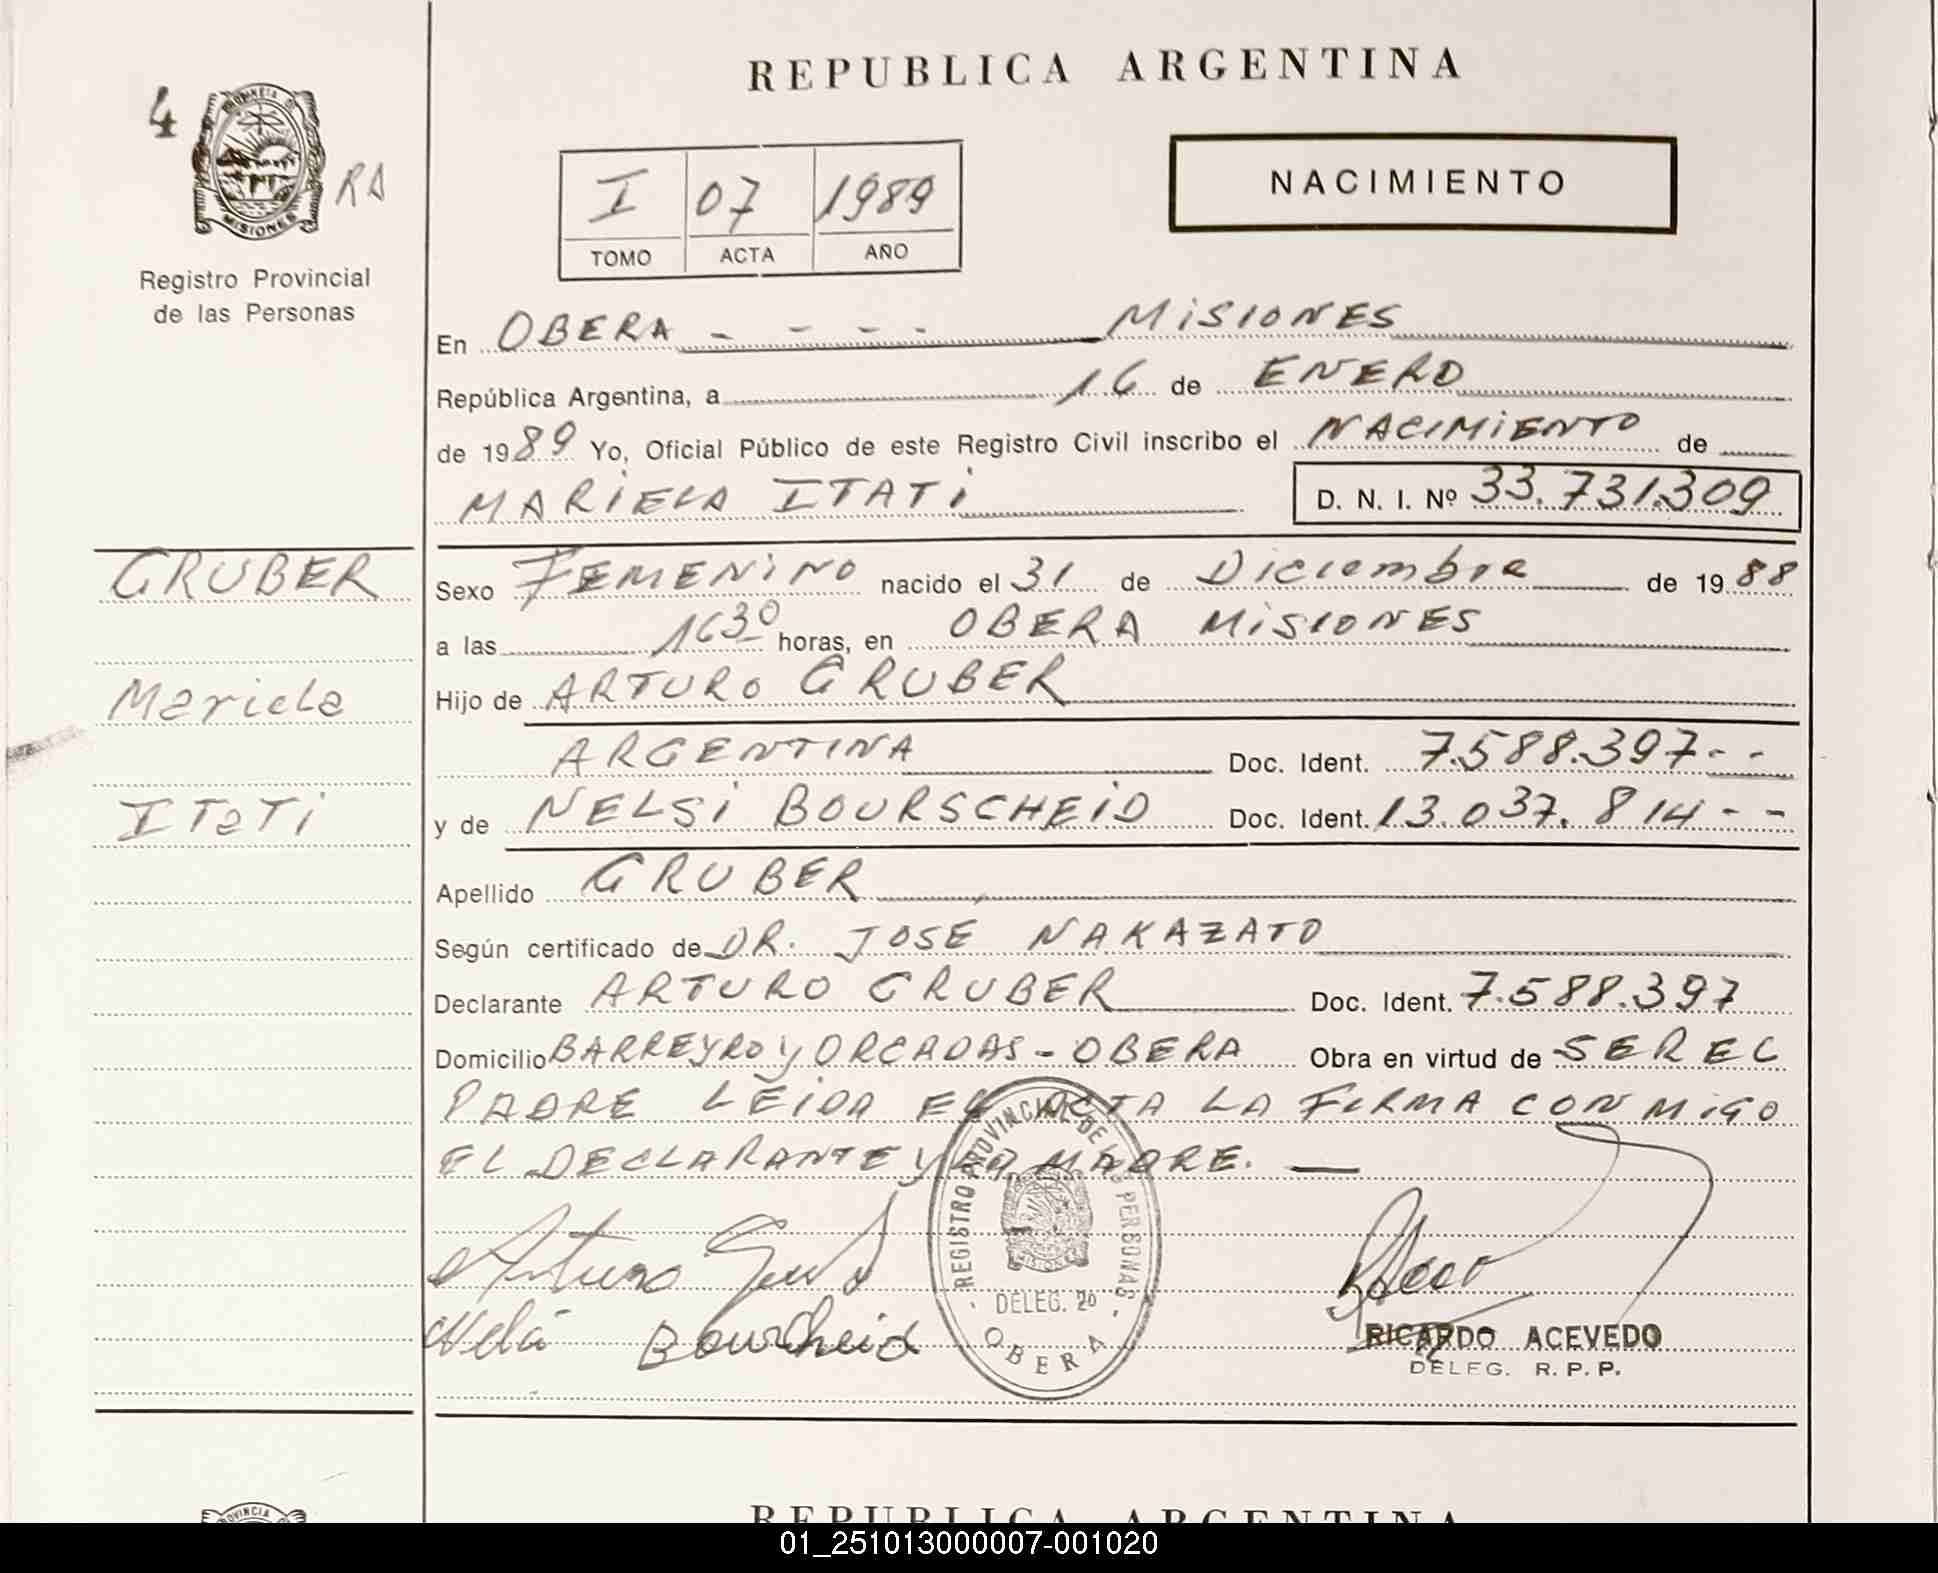 REPUBLICA ARGENTINA
4
PROVINCIA DE MISIONES
RA
Registro Provincial
de las Personas
I 07 1989
TOMO ACTA AÑO
NACIMIENTO
En OBERA - - - - MISIONES
República Argentina, a 16 de ENERO
de 1989 Yo, Oficial Público de este Registro Civil inscribo el NACIMIENTO de
MARIELA ITATI D. N. I. Nº 33.731.309
GRUBER
Mariela
ITaTi
Sexo FEMENINO nacido el 31 de Diciembre de 1988
a las 1630 horas, en OBERA MISIONES
Hijo de ARTURO GRUBER
ARGENTINA Doc. Ident. 7.588.397--
y de NELSI BOURSCHEID Doc. Ident. 13.037.814--
Apellido GRUBER
Según certificado de DR. JOSÉ NAKAZATO
Declarante ARTURO GRUBER Doc. Ident. 7.588.397
Domicilio BARREYRO y ORCADAS - OBERA Obra en virtud de SER EL
PADRE LEIDA EL ACTA LA FIRMA CONMIGO
EL DECLARANTE y LA MADRE. —
Arturo
Bourscheid
REGISTRO PROVINCIAL DE LAS PERSONAS
MISIONES
DELEG. 20
OBERA
RICARDO ACEVEDO
DELEG. R.P.P.
PROVINCIA
REPUBLICA ARGENTINA
01_251013000007-001020